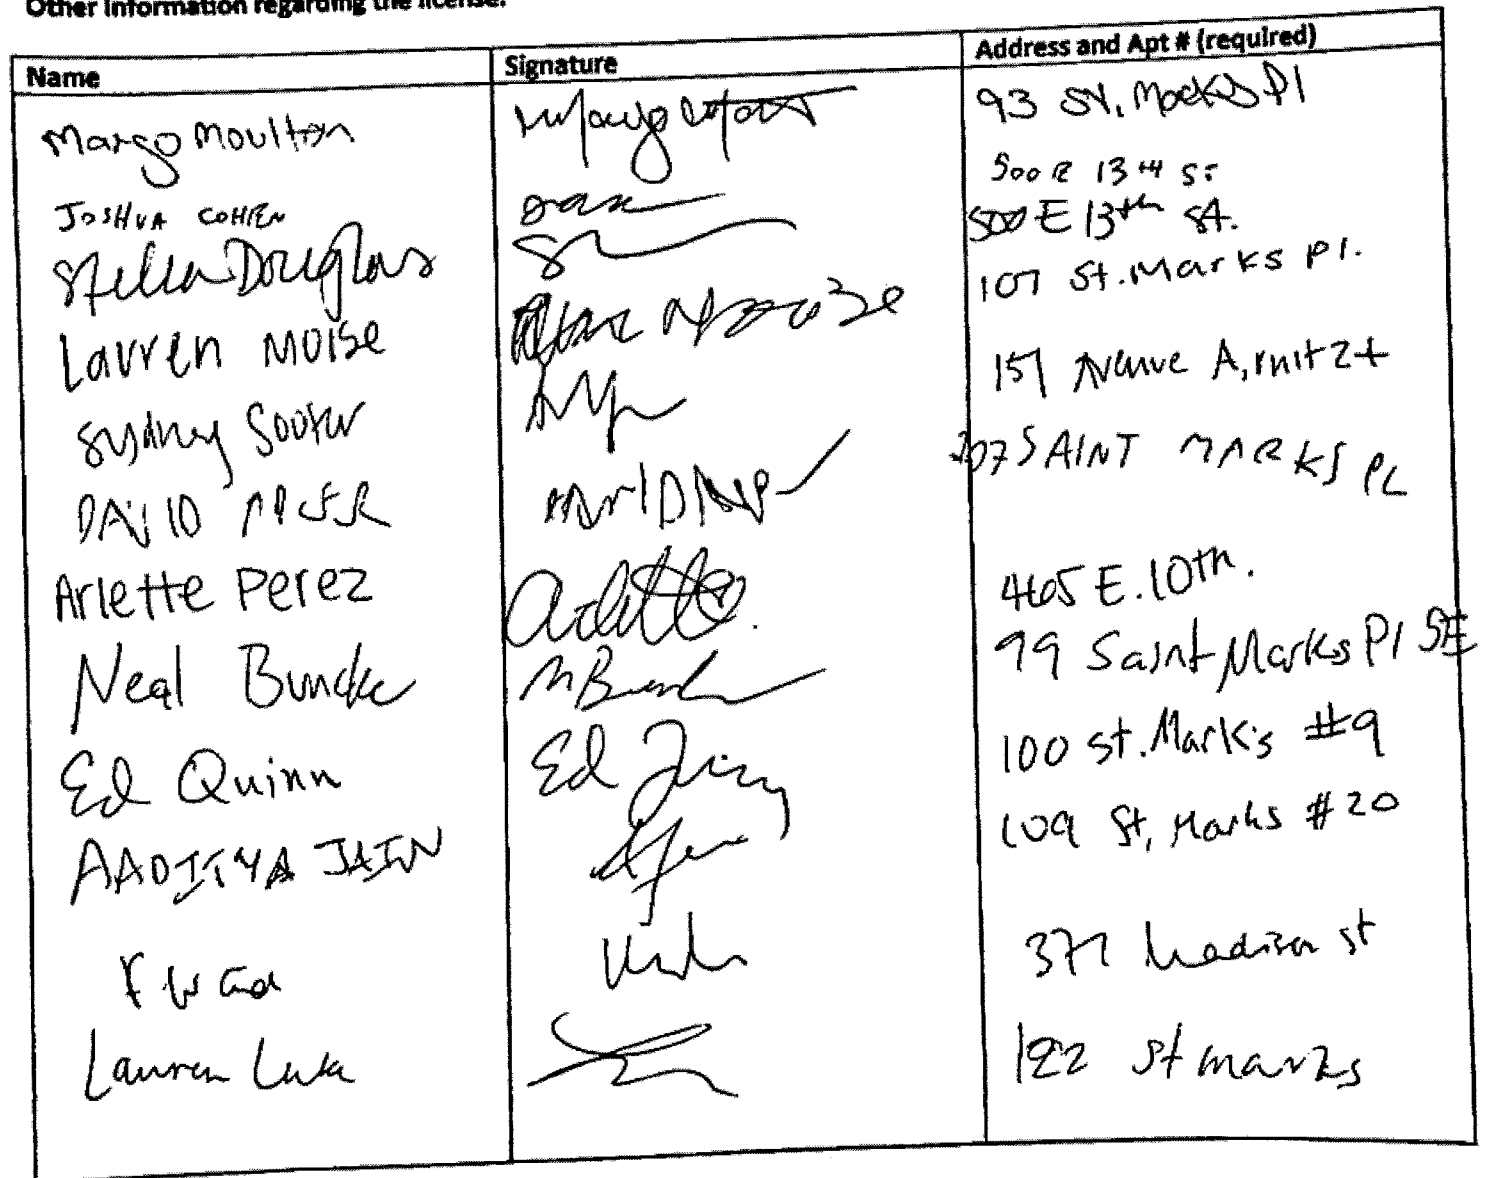 Other information regarding the license:
Name Signature Address and Apt # (required)
Margo Moulton 93 St. Marks Pl
JOSHUA COHEN 500 E 13TH ST
Stella Douglas 500 E 13th St.
Lauren Moise 107 St. Marks Pl.
Sydney Souter 157 Avenue A, unit 2
DAVID 207 SAINT MARKS PL
Arlette Perez Arlette 465 E. 10th.
Neal Buncke 99 Saint Marks Pl 5E
Ed Quinn Ed Quinn 100 St. Mark's #9
AADITYA JAIN 109 St, Marks #20
377 Madison St
Lauren Luka 122 St marks